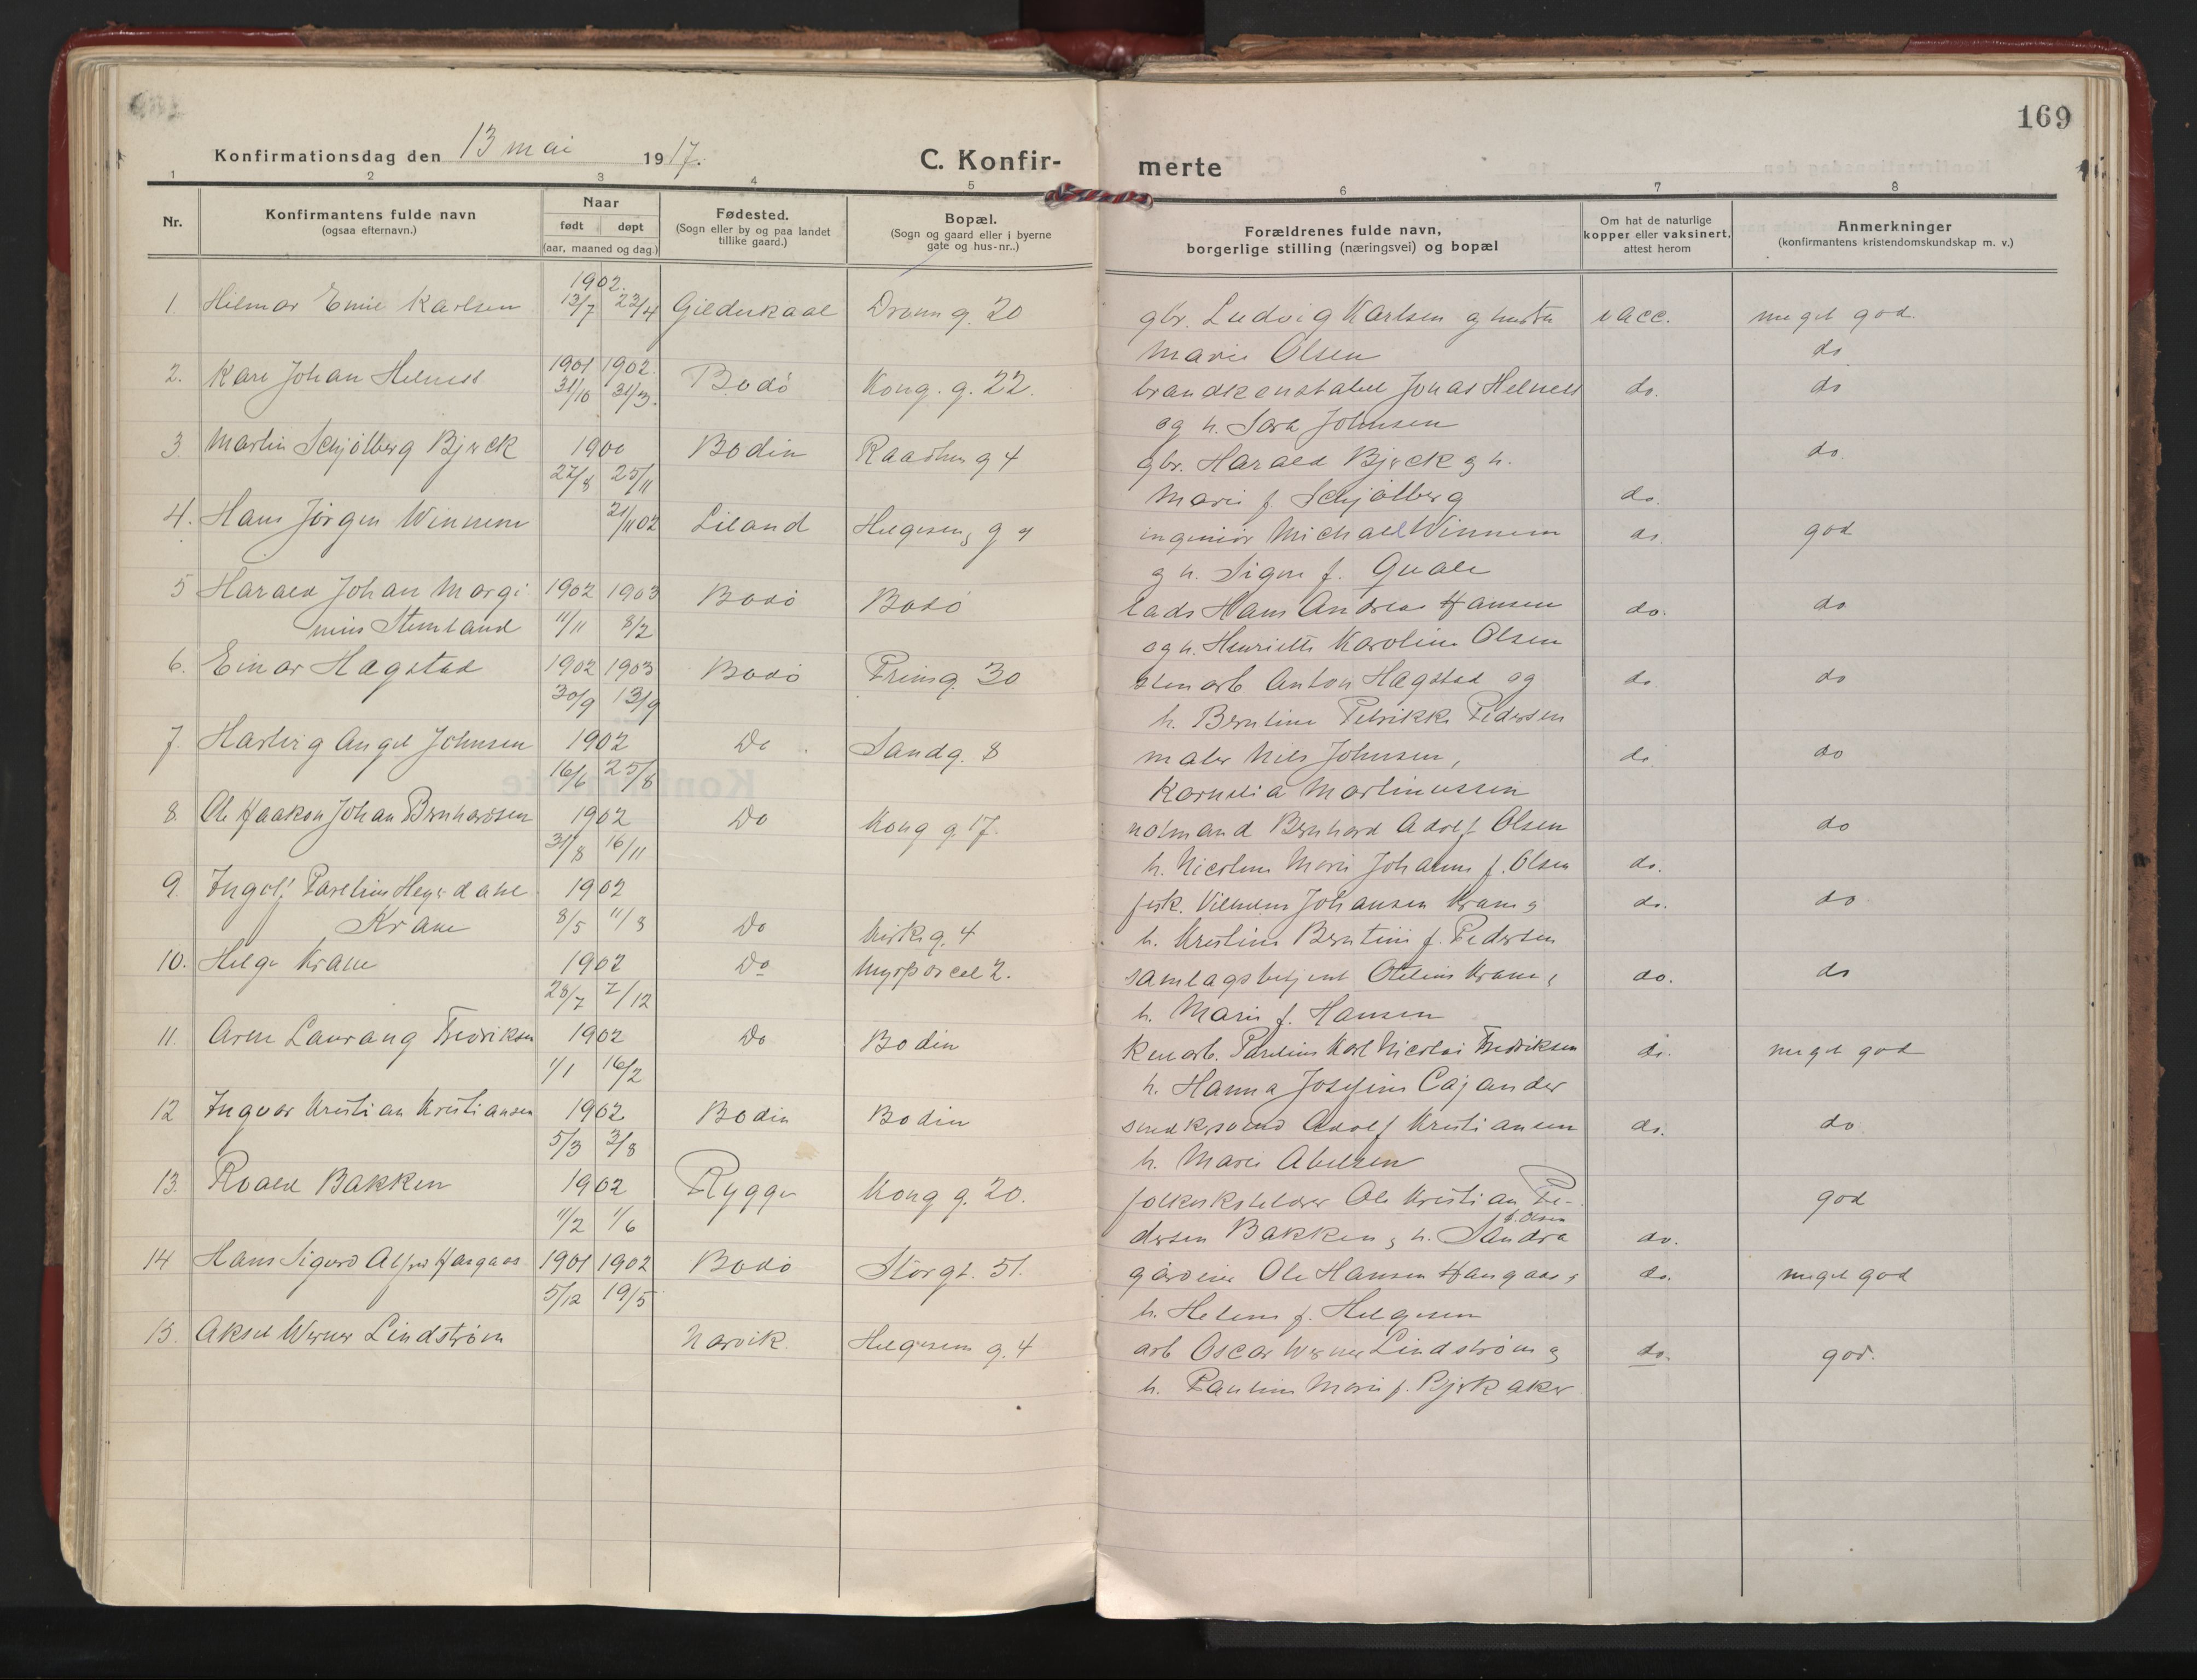 169
Konfirmationsdag den 13 mai 1917.
C. Konfir-
merte
1 2 3 4 5 6 7 8
Nr.
Konfirmantens fulde navn
(ogsaa efternavn.)
Naar
født døpt
(aar, maaned og dag.)
Fødested.
(Sogn eller by og paa landet
tillike gaard.)
Bopæl.
(Sogn og gaard eller i byerne
gate og hus-nr..)
Forældrenes fulde navn,
borgerlige stilling (næringsvei) og bopæl
Om hat de naturlige
kopper eller vaksinert,
attest herom
Anmerkninger
(konfirmantens kristendomskundskap m. v.)
1902.
1. Hilmar Emil Karlsen 13/7 23/4 Gildeskaal g. 20 gbr. Ludvig Karlsen og hustru vacc. meget god.
Marie Olsen do
1901 1902.
2. Kare Johan Helness 31/10 31/3. Bodö Kong. g. 22. brandkonstabel Jonas Helness do. do
og h. Sara Johnsen
3 Martin Schjölberg Bjørck 1900 Bodin Raadhus g 4 gbr. Harald Bjørck og h. do
27/8 25/11 Marie f. Schjölberg do.
4. Hans Jörgen Winnem 21/11 02 Liland Helgesens g 4 ingeniör Michael Winnem do. god
og h. Signe f. Quale
5 Harald Johan Margi- 1902 1903 Bodö Bodö lads Hans Andreas Hansen do. do
nius Stemland 11/11 8/2 og h. Henriette Karoline Olsen
6. Einar Hagstad 1902 1903 Bodö Prinsg. 30 stenarb Anton Hagstad og do do
30/9 13/9 h. Berntine Petrikke Pedersen
7. Hartvig Angel Johnsen 1902 Do Sandg. 8 maler Nils Johnsen, do do
16/6 25/8 Kornelia Martinussen
8. Ole Haakon Johan Bernhardsen 1902 Do Kong g. 17. notmand Bernhard Adolf Olsen do
31/8 16/11 h. Nicoline Marie Johanne f. Olsen do.
9. Ingolf Parelius Heyerdahl 1902
Krane 8/5 11/8 Do Kirkeg. 4 fisk. Vilhelm Johansen Krane og do. do
h. Kristine Berntine f. Pedersen
10. Helge Krane 1902 Do Myrparcel 2. samlagsbetjent Otelius Krane og do. do
28/7 7/12 h. Marie f. Hansen
11. Arne Laurang Fredriksen 1902 Do Bodin Parelius Karl Nicolai Fredriksen do. meget god
1/1 16/2 h. Hanna Josefine Cajander
12 Ingvar Kristian Kristiansen 1902 Bodin Bodin Adolf Kristiansen do. do
5/3 3/8 h. Marie Abelsen
13. Roald Bakken 1902 Rygge Kong g. 20. Ole Kristian Pe- god
f. Olsen
11/2 1/6 dersen Bakken og h. Sandra do.
14 Hans Sigurd Alfred Haugaas 1901 1902 Bodö Storgt. 51. gardeier Ole Hansen Haugaas og do. meget god
5/12 19/5 h. Helene f. Helgesen
15. Aksel Werner Lindström Narvik. Helgesens g. 4 arb Oscar Werner Lindström og do. god.
h. Pauline Marie f. Bjerkaker